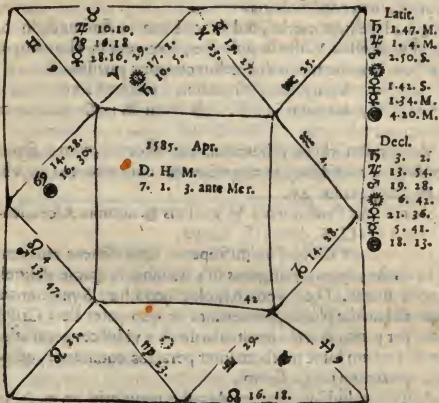 ♉
♃ 10.10.
♂ 16.18
♀ 28.16.
♊ 9
♈ 29.
☉ 17. 2.
♄ 10. 5.
♓ 25.
☿ 19. 27.
♒ 25.
♋ 14. 28.
☽ 16. 30.
1585. Apr.
D. H. M.
7. 1. 3. ante Mer.
♑ 14. 28.
♌ 4
13. 47.
♌ 25.
♍ 23.
♎ 29.
♐ 9
☊ 16. 18.
42
Latit.
♄ 1. 47. M.
♃ 1. 4. M.
♂ 2. 50. S.
☉
♀ 1. 42. S.
☿ 1. 34. M.
☽ 4. 20. M.
Decl.
♄ 3. 2.
♃ 13. 54.
♂ 19. 28.
☉ 6. 42.
♀ 21. 36.
☿ 5. 41.
☽ 18. 13.